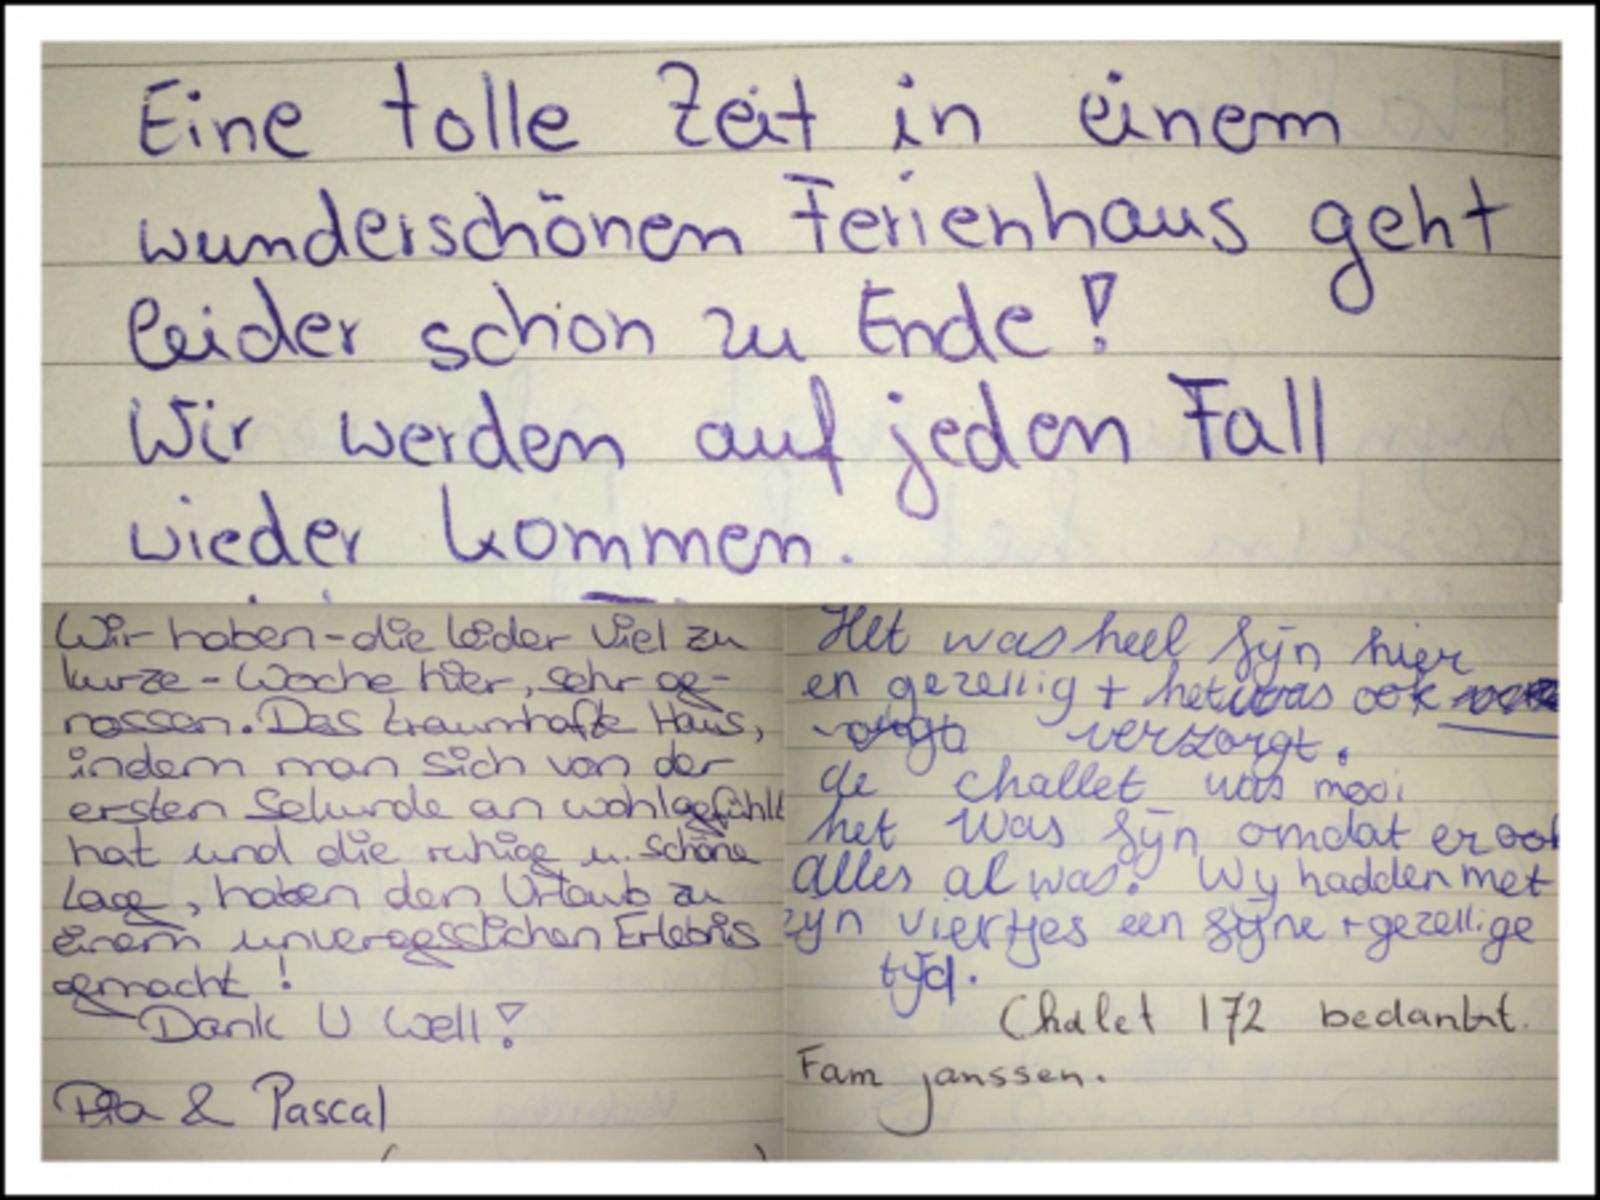 Eine tolle Zeit in einem
wunderschönen Ferienhaus geht
leider schon zu Ende!
Wir werden auf jeden Fall
wieder kommen.
Wir haben - die leider viel zu
kurze - Woche hier, sehr ge-
nossen. Das traumhafte Haus,
indem man sich von der
ersten Sekunde an wohlgefühlt
hat und die ruhige u. schöne
Lage, haben den Urlaub zu
einem unvergesslichen Erlebnis
gemacht!
Dank U Well!
Pia & Pascal
Het was heel fijn hier
en gezellig + het was ook
verzorgt.
de challet was mooi
het was fijn omdat er ook
alles al was. Wy hadden met
zyn viertjes een fijne + gezellige
tijd.
Chalet 172 bedankt.
Fam janssen.